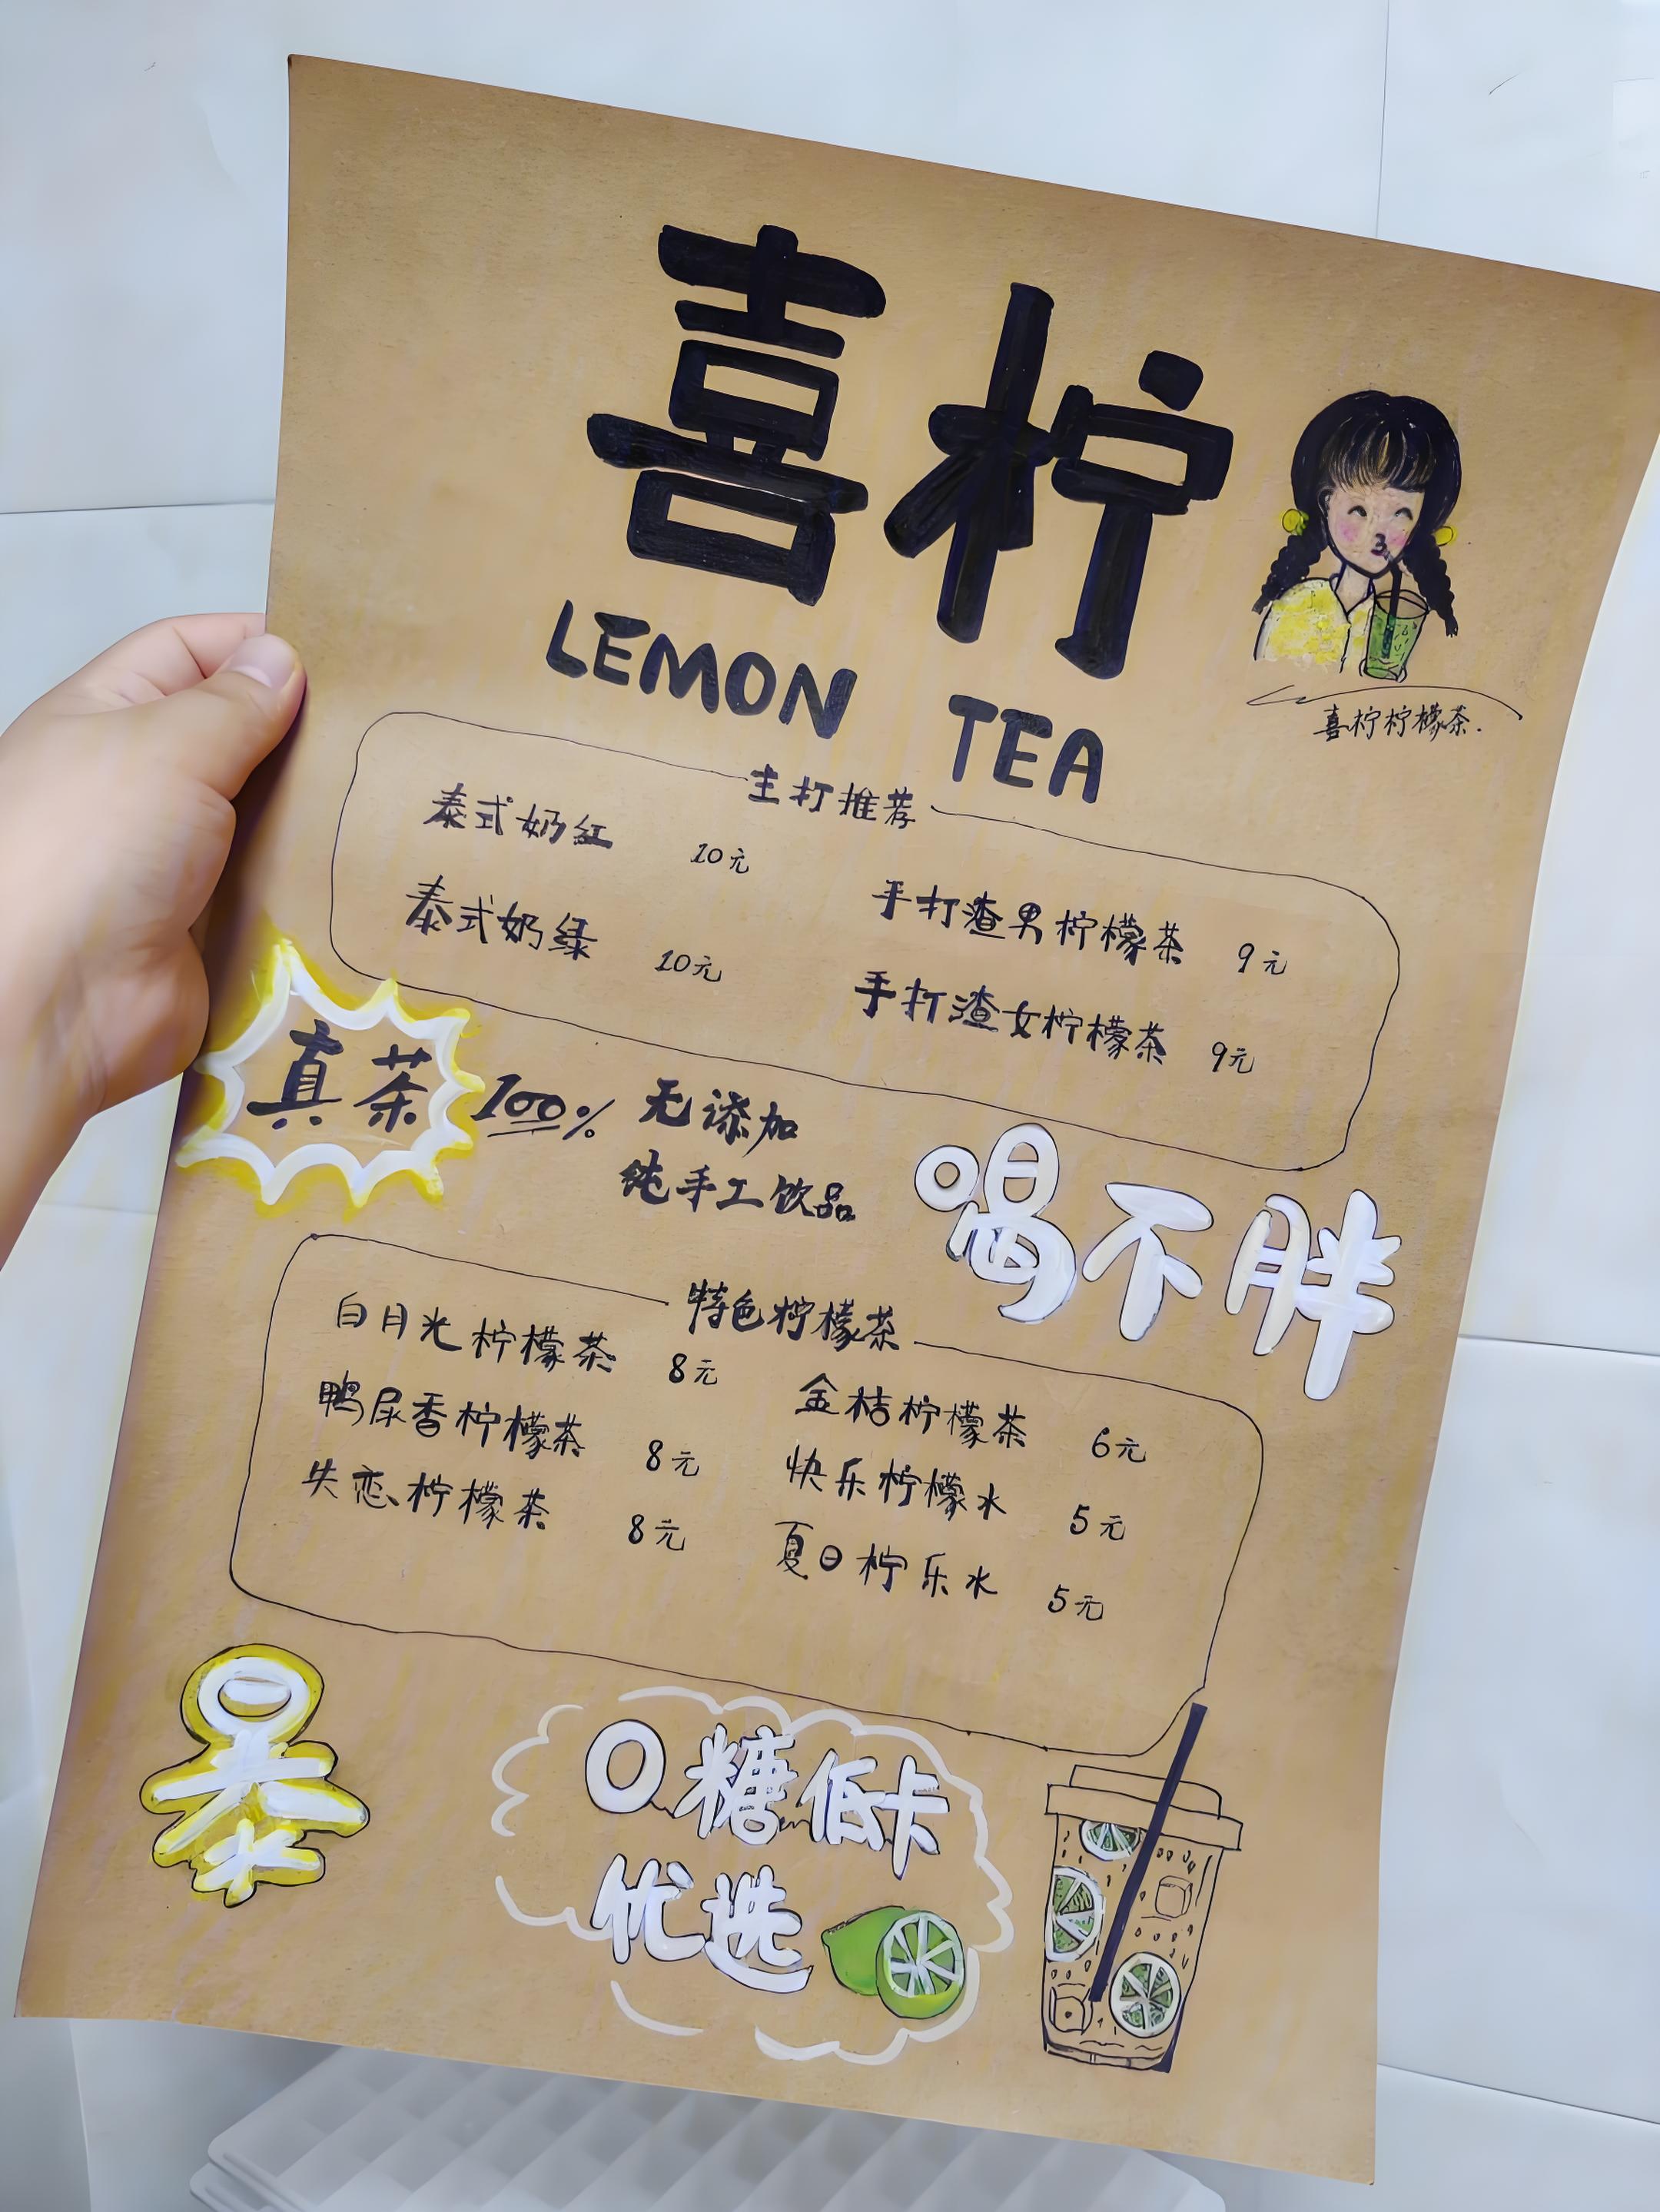 喜柠
LEMON TEA
喜柠柠檬茶.
主打推荐
泰式奶红 10元
泰式奶绿 10元
手打渣男柠檬茶 9元
手打渣女柠檬茶 9元
真茶 100% 无添加
纯手工饮品
喝不胖
特色柠檬茶
白月光柠檬茶 8元
鸭尿香柠檬茶 8元
失恋柠檬茶 8元
金桔柠檬茶 6元
快乐柠檬水 5元
夏日柠乐水 5元
暴
0糖低卡
优选